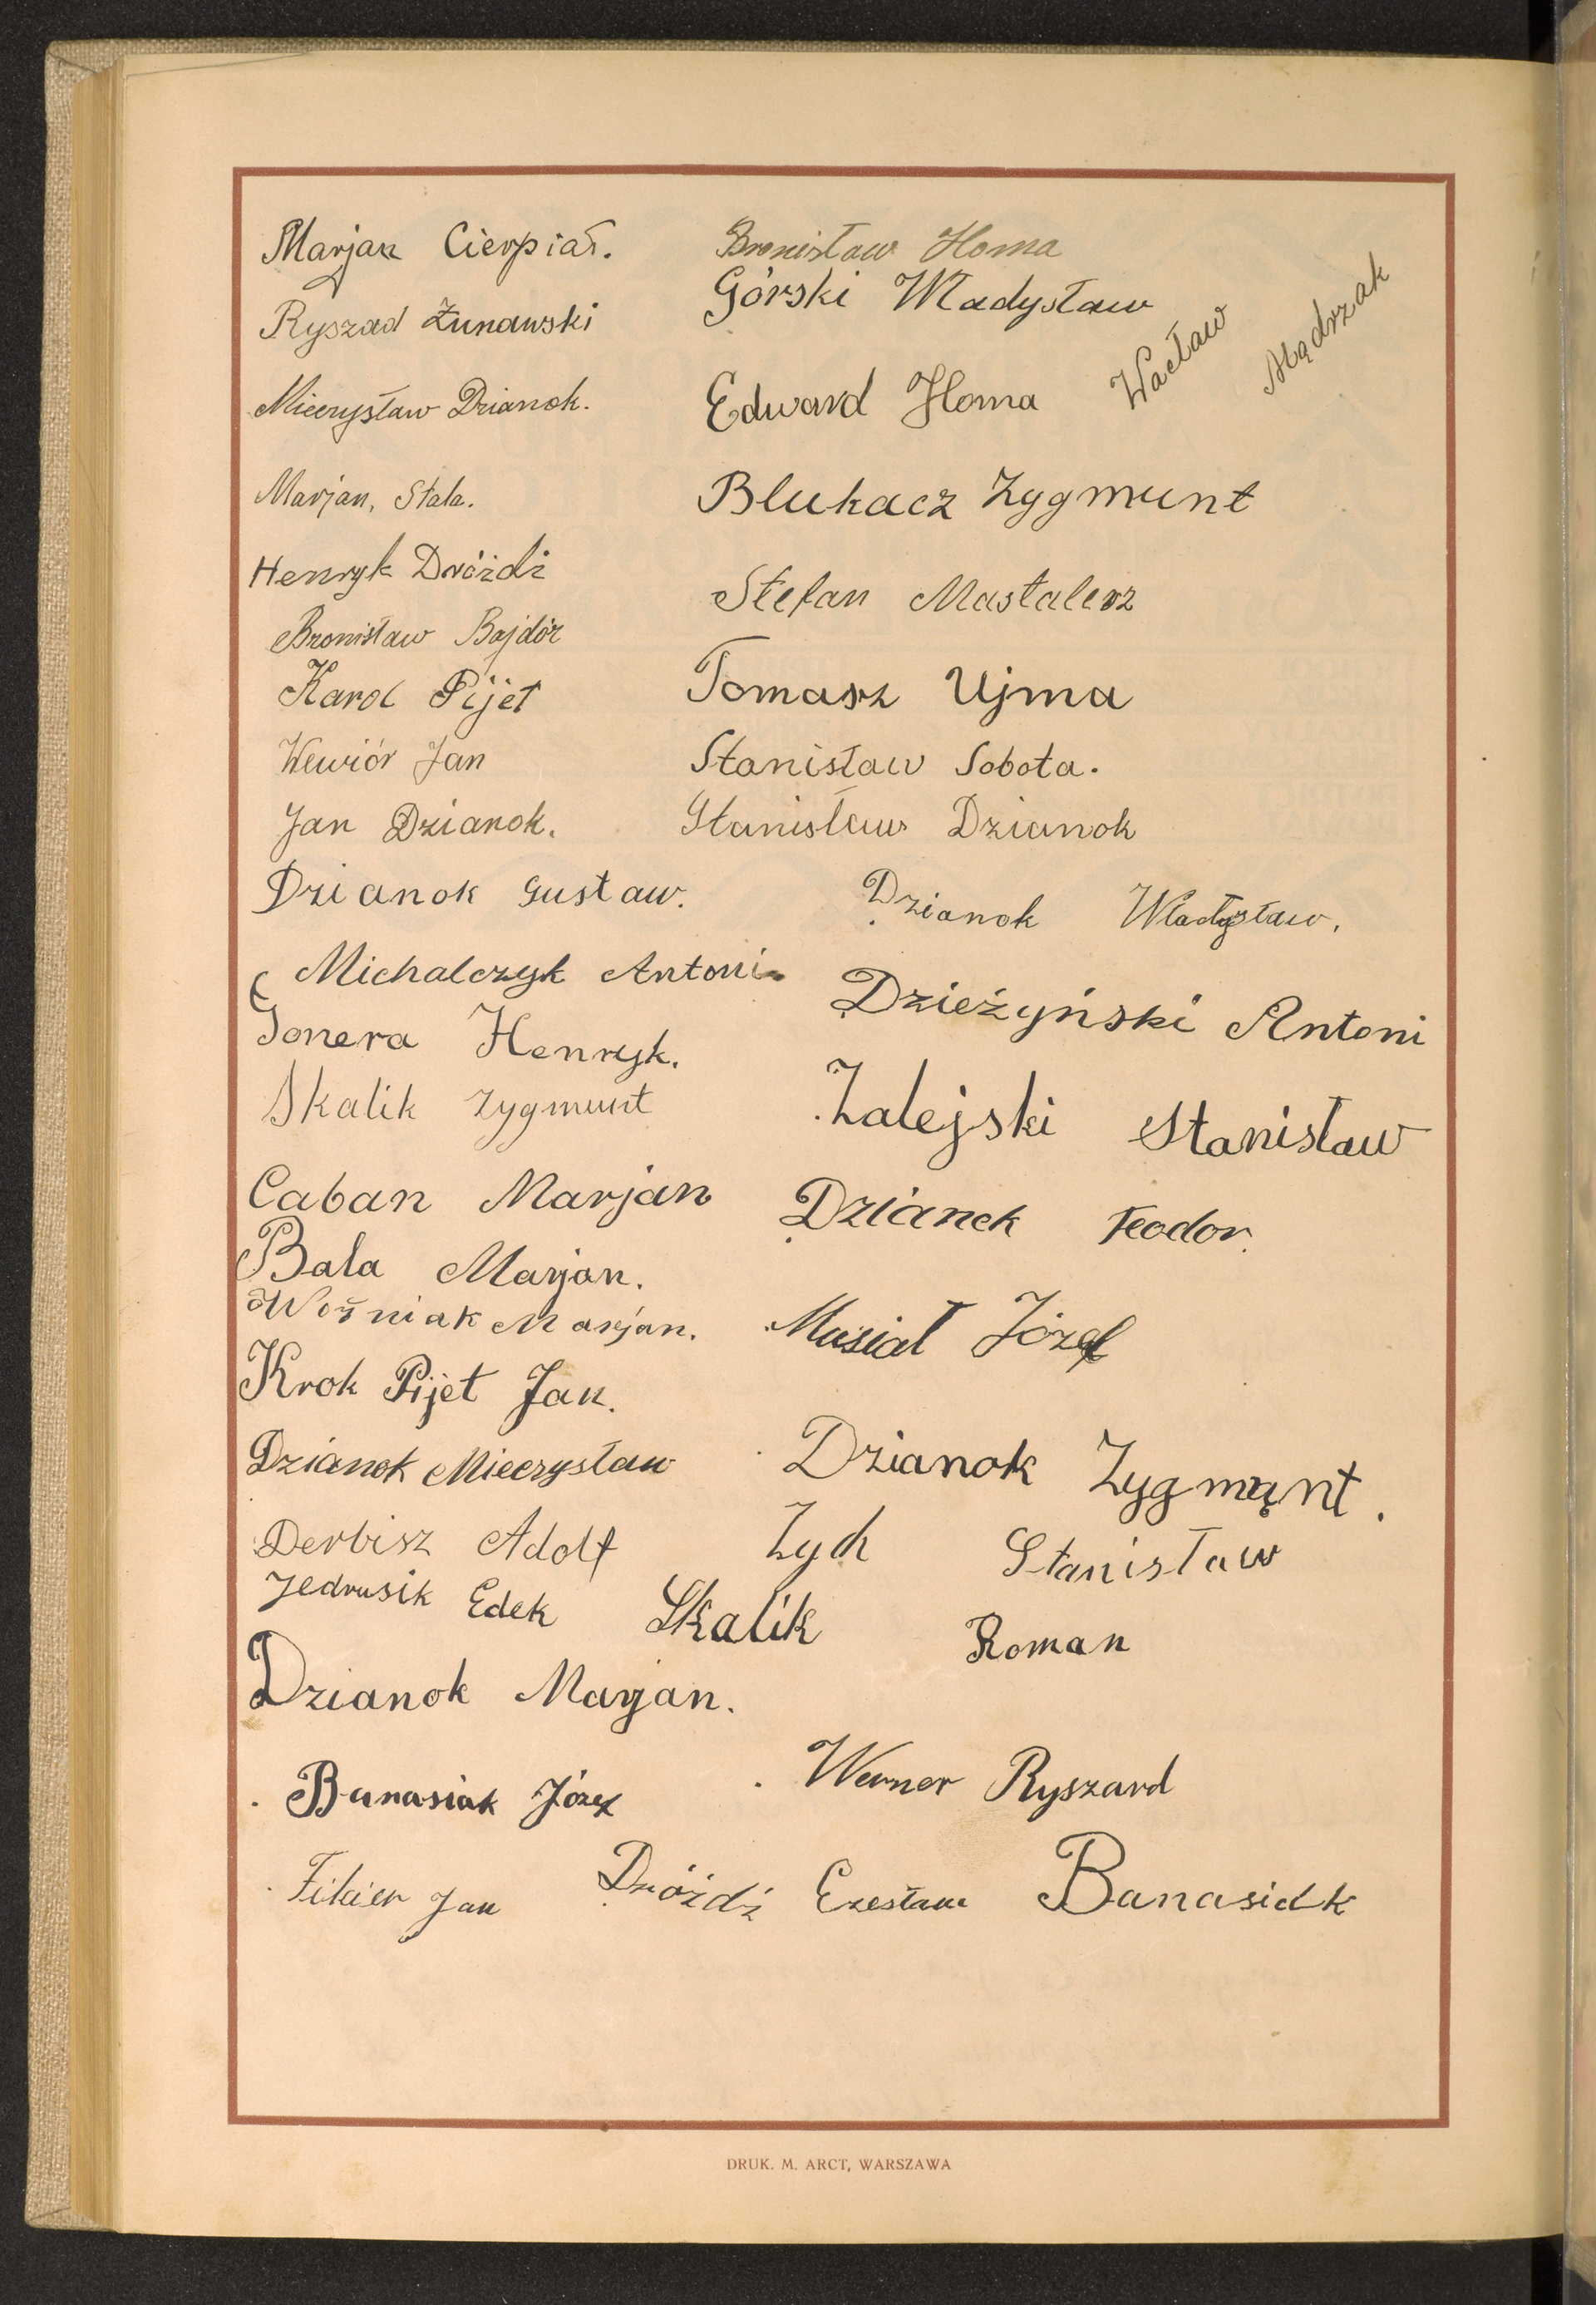 Marjan Cierpiał.
Ryszad Żurawski
Mieczysław Dzianok.
Marjan, Stala.
Henryk Dróżdż
Bronisław Bajdór
Karol Pijet
Wewiór Jan
Jan Dzianok.
Dzianok Gustaw.
Michalczyk Antoni
Gonera Henryk.
Skalik Zygmunt
Caban Marjan
Bala Marjan.
Woźniak Marjan.
Krok Pijet Jan.
Dzianok Mieczysław
Derbisz Adolf
Jedrusik Edek
Dzianok Marjan.
Banasiak Józef
Fikier Jan
Bronisław Homa
Górski Władysław
Edward Homa
Wacław Mądrzak
Blukacz Zygmunt
Stefan Mastalerz
Tomasz Ujma
Stanisław Sobota.
Stanisław Dzianok
Dzianok Władysław.
Dzieżyński Antoni
Zalejski Stanisław
Dzianek Teodor.
Musiał Józef
Dzianok Zygmąnt.
Zych Stanisław
Skalik Roman
Werner Ryszard
Dróżdź Czesław Banasiak
DRUK. M. ARCT, WARSZAWA